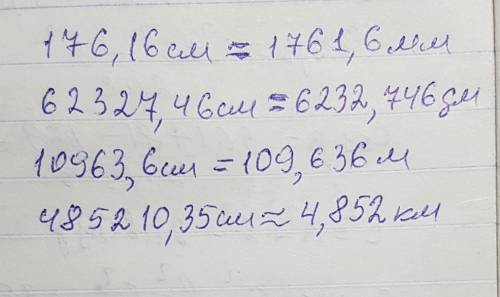 176,16см = 1761,6мм
62327,46см = 6232,746дм
10963,6см = 109,636м
485210,35см ≈ 4,852км